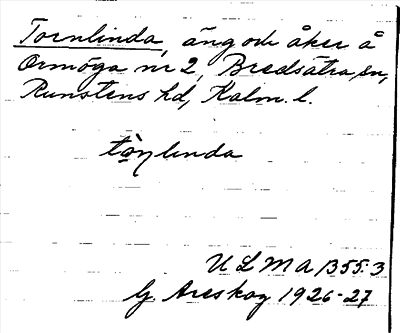 Tornlinda, äng och åker å
Ormöga nr 2, Bredsätra sn,
Runstens hd, Kalm. l.
tòṇlinda
ULMA 1355:3
G. Areskog 1926-27